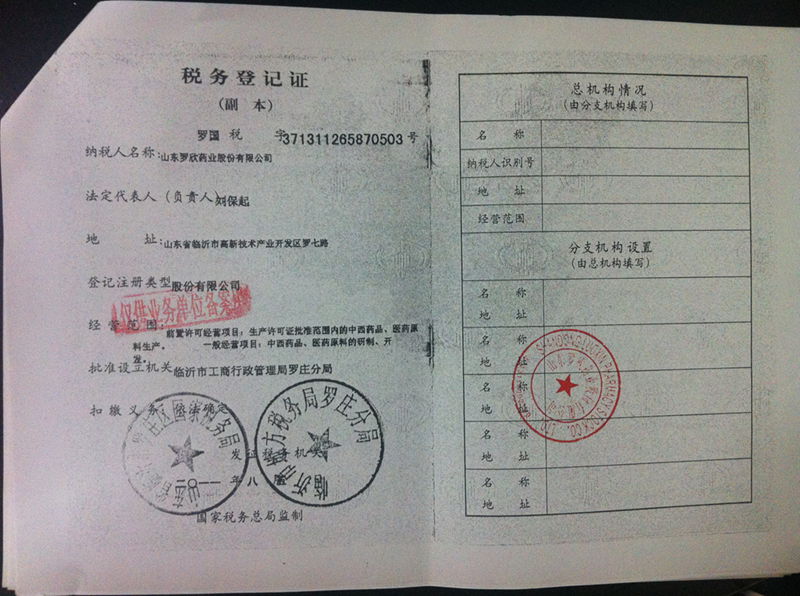 税务登记证
(副 本)
罗国 税 字371311265870503号
纳税人名称:山东罗欣药业股份有限公司
法定代表人(负责人)刘保起
地 址:山东省临沂市高新技术产业开发区罗七路
登记注册类型股份有限公司
仅供业务单位备案
经营范围:前置许可经营项目:生产许可证批准范围内的中西药品、医药原
料生产。 一般经营项目:中西药品、医药原料的研制、开
发。
批准设立机关 临沂市工商行政管理局罗庄分局
扣缴义务 依法确定
庄区国家税务局
临沂 地方税务局罗庄分局
发证税务机关
年 八
国家税务总局监制
总机构情况
(由分支机构填写)
名 称
纳税人识别号
地 址
经营范围
分支机构设置
(由总机构填写)
名 称
地 址
名 称
地 址
名 称
地 址
名 称
地 址
名 称
地 址
PHARMACY STOCK CO., LTD.